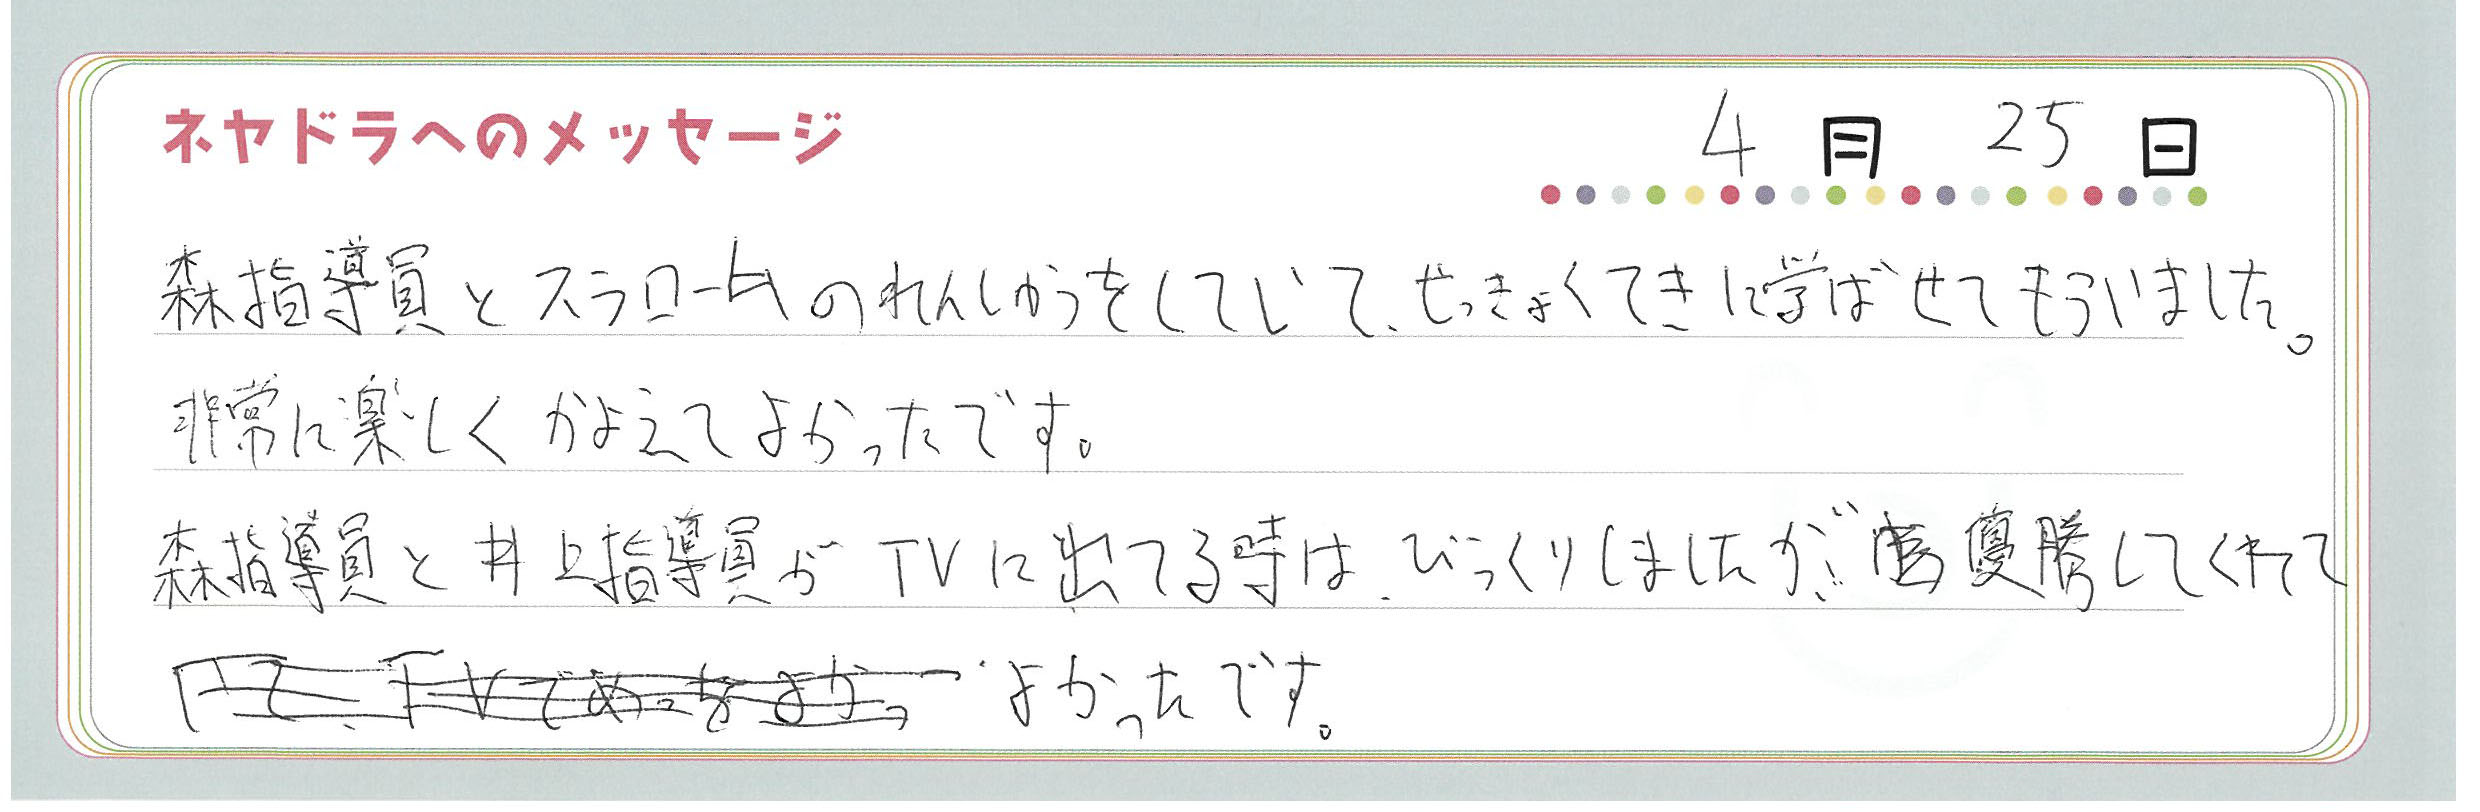 ネヤドラへのメッセージ
4月 25日
森指導員とスラロームのれんしゅうをしていて、せっきょくてきに学ばせてもらいました。
非常に楽しくかよえてよかったです。
森指導員と井上指導員がTVに出てる時は、びっくりしましたが、優勝してくれて
よかったです。